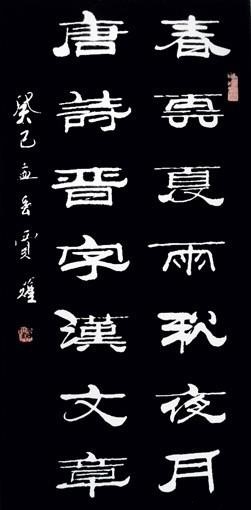 春雲夏雨秋夜月
唐詩晋字漢文章
癸巳孟春